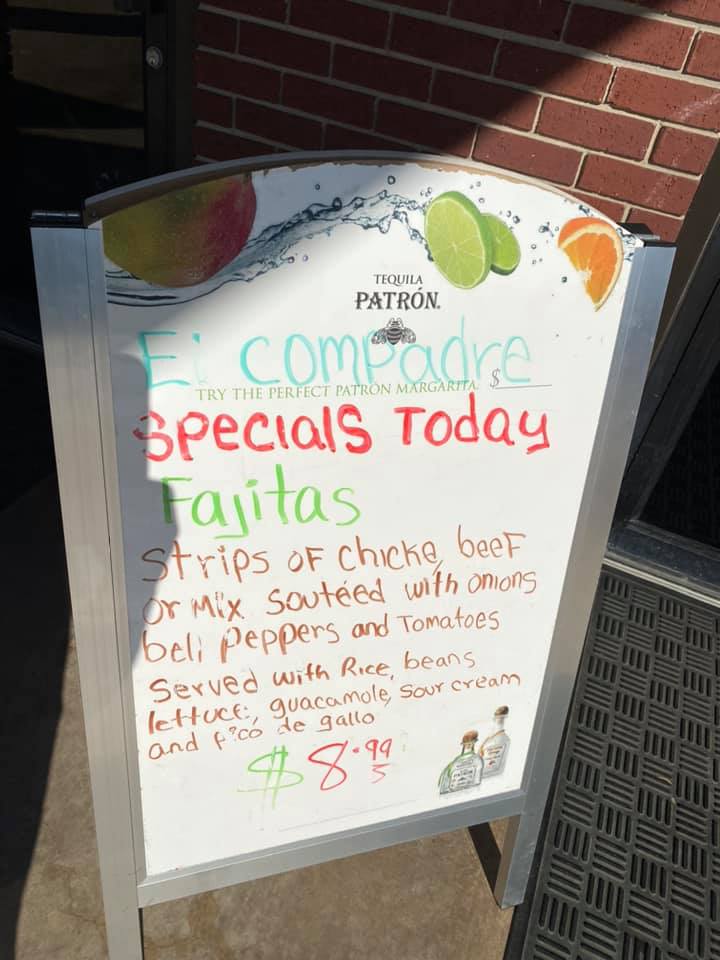 TEQUILA
PATRÓN.
El compadre
TRY THE PERFECT PATRÓN MARGARITA. $
Specials Today
Fajitas
Strips of chicke, beef
or Mix soutéed with onions
bell peppers and Tomatoes
Served with Rice, beans
lettuce, guacamole, sour cream
and pico de gallo
$8.99